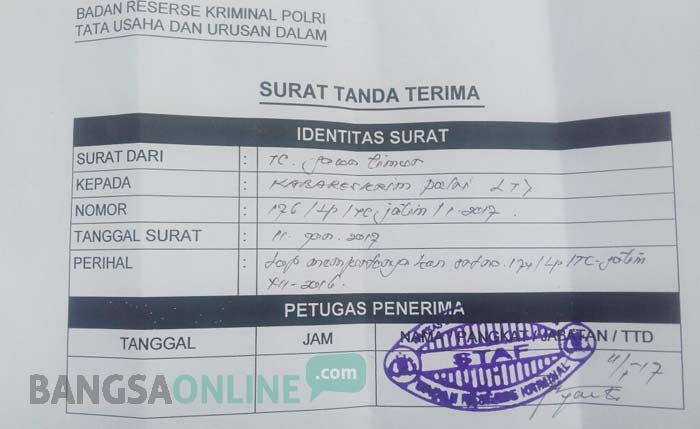 BADAN RESERSE KRIMINAL POLRI
TATA USAHA DAN URUSAN DALAM
SURAT TANDA TERIMA
IDENTITAS SURAT
SURAT DARI : TC. jawa timur
KEPADA : KABARESKRIM polri
NOMOR : 176/LP/TC-jatim/1-2017.
TANGGAL SURAT : 11-jan-2017
PERIHAL : Lap mempertanyakan
XII-2016.
PETUGAS PENERIMA
TANGGAL JAM NAMA / PANGKAT / JABATAN / TTD
STAF
BADAN RESERSE KRIMINAL
BANGSAONLINE.com